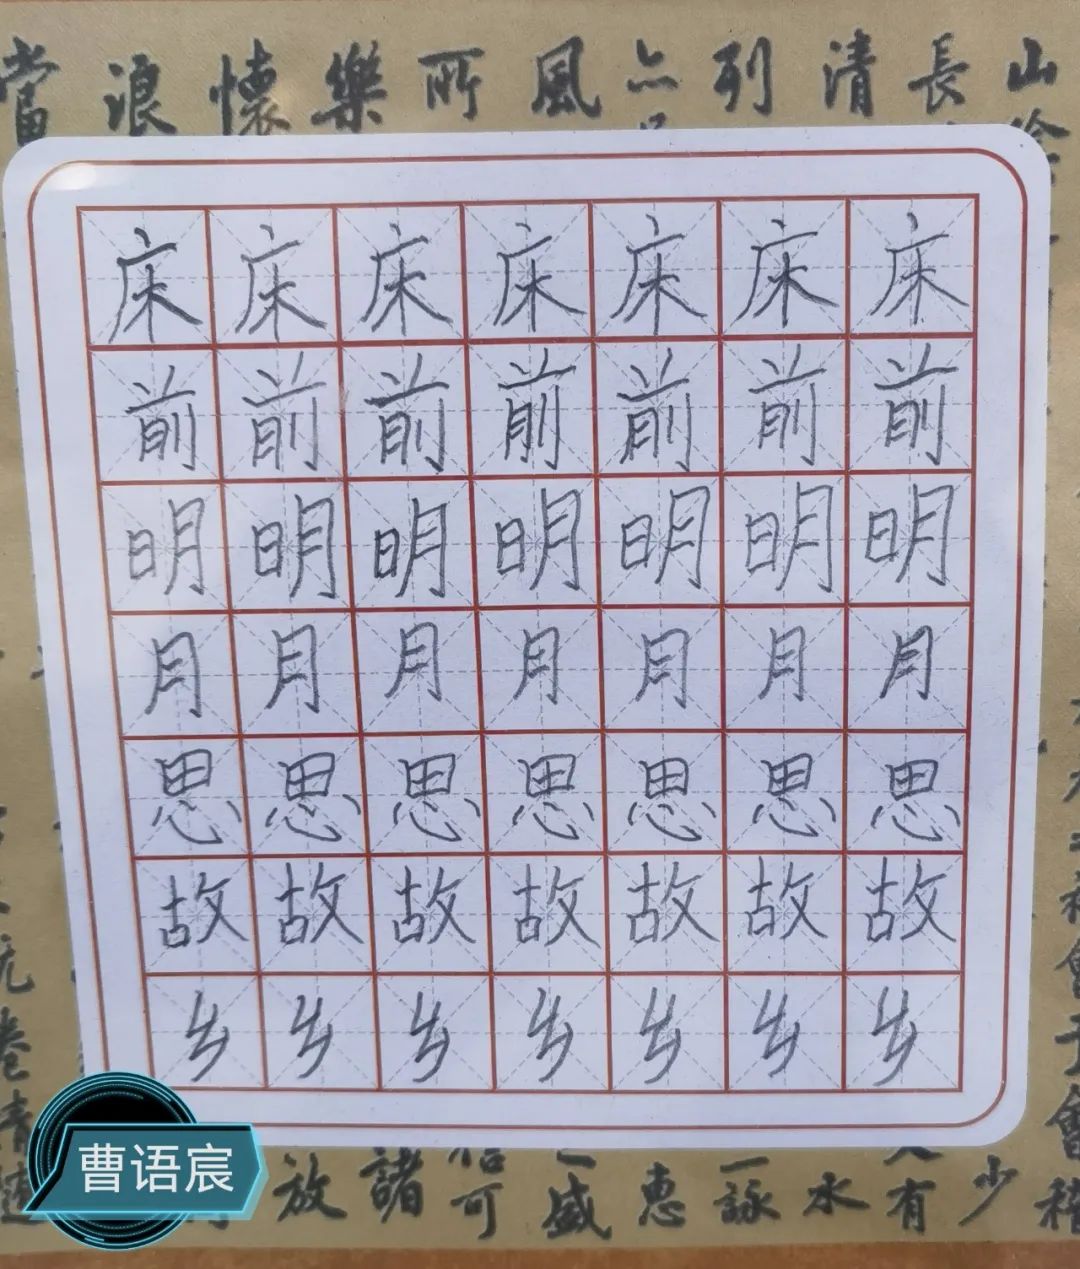 當浪懷樂所風 列清長山
床床床床床床床
前前前前前前前
明明明明明明明
月月月月月月月
思思思思思思思
故故故故故故故
乡乡乡乡乡乡乡
曹语宸
放諸 可盛惠詠水有少稽